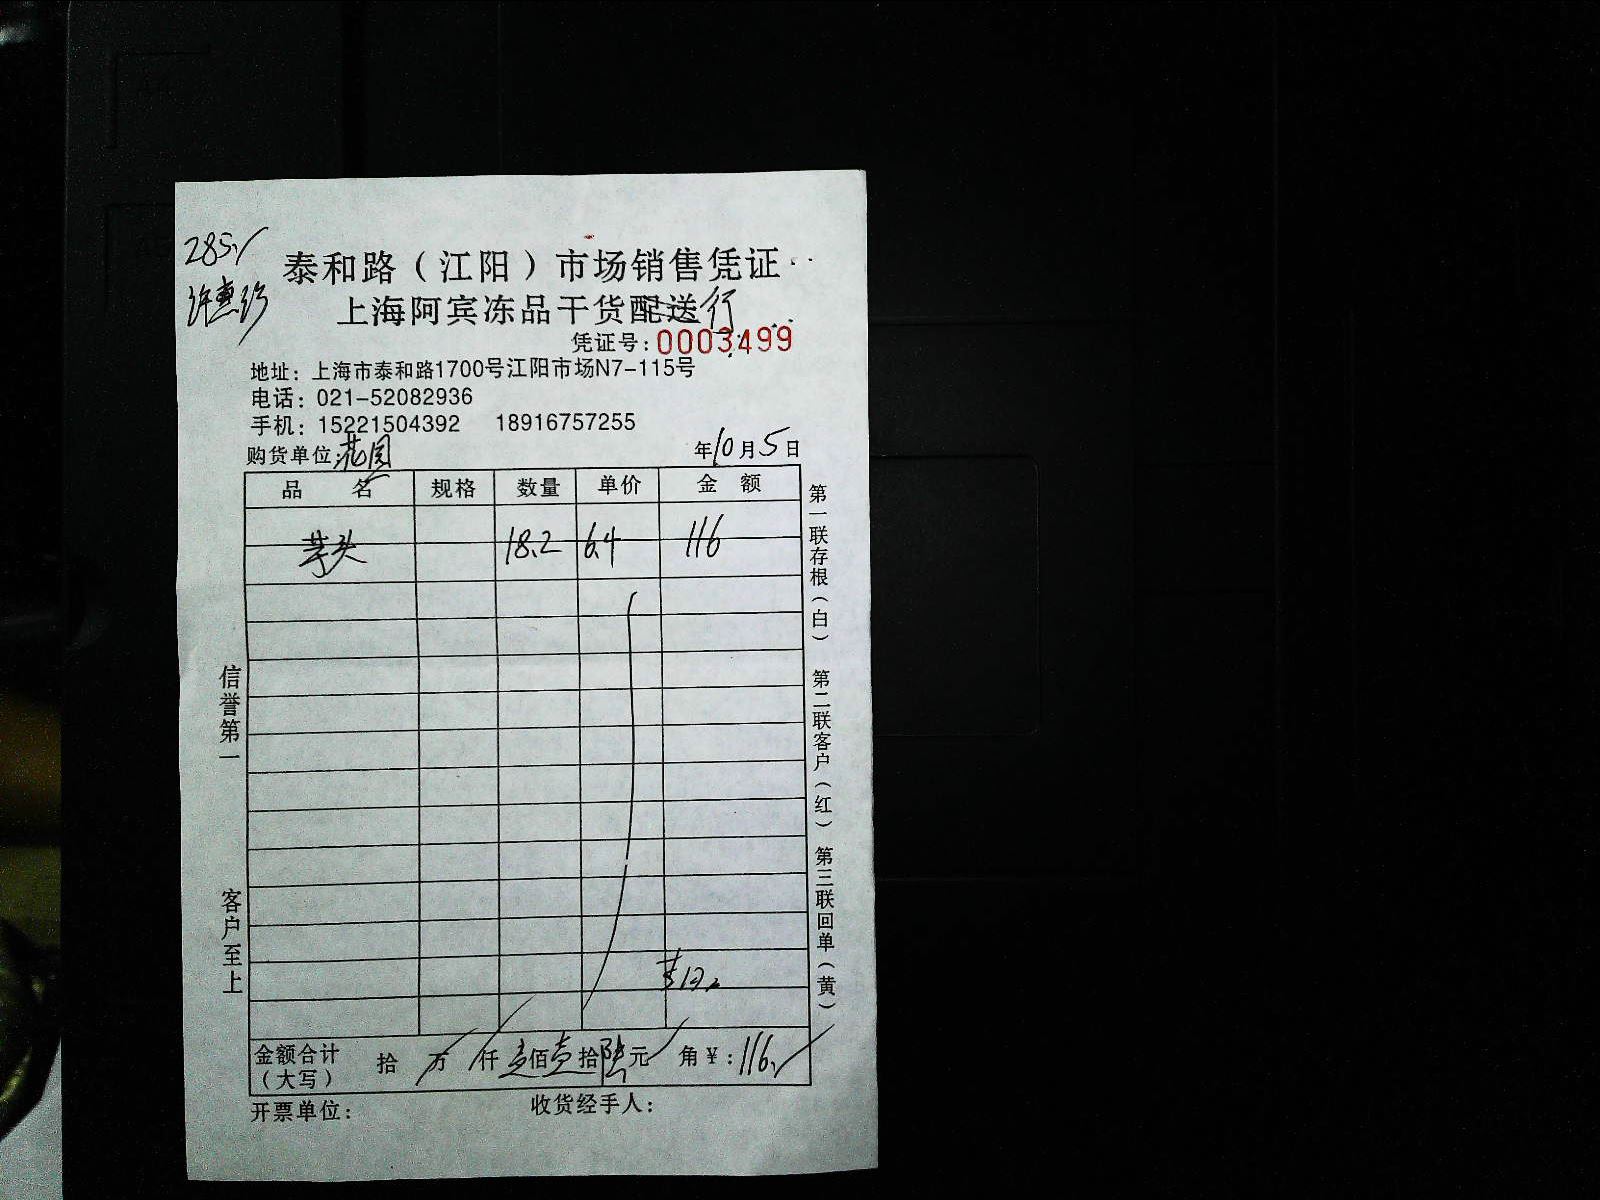 285
泰和路（江阳）市场销售凭证
许惠珍
上海阿宾冻品干货配送行
凭证号：0003499
地址：上海市泰和路1700号江阳市场N7-115号
电话：021-52082936
手机：15221504392 18916757255
购货单位：花园 年10月5日
品名 规格 数量 单价 金额
芋头 18.2 6.4 116
金额合计（大写） 拾 万 仟 壹佰壹拾陆元 角 ￥：116
开票单位： 收货经手人：
信誉第一 客户至上
第一联存根（白） 第二联客户（红） 第三联回单（黄）